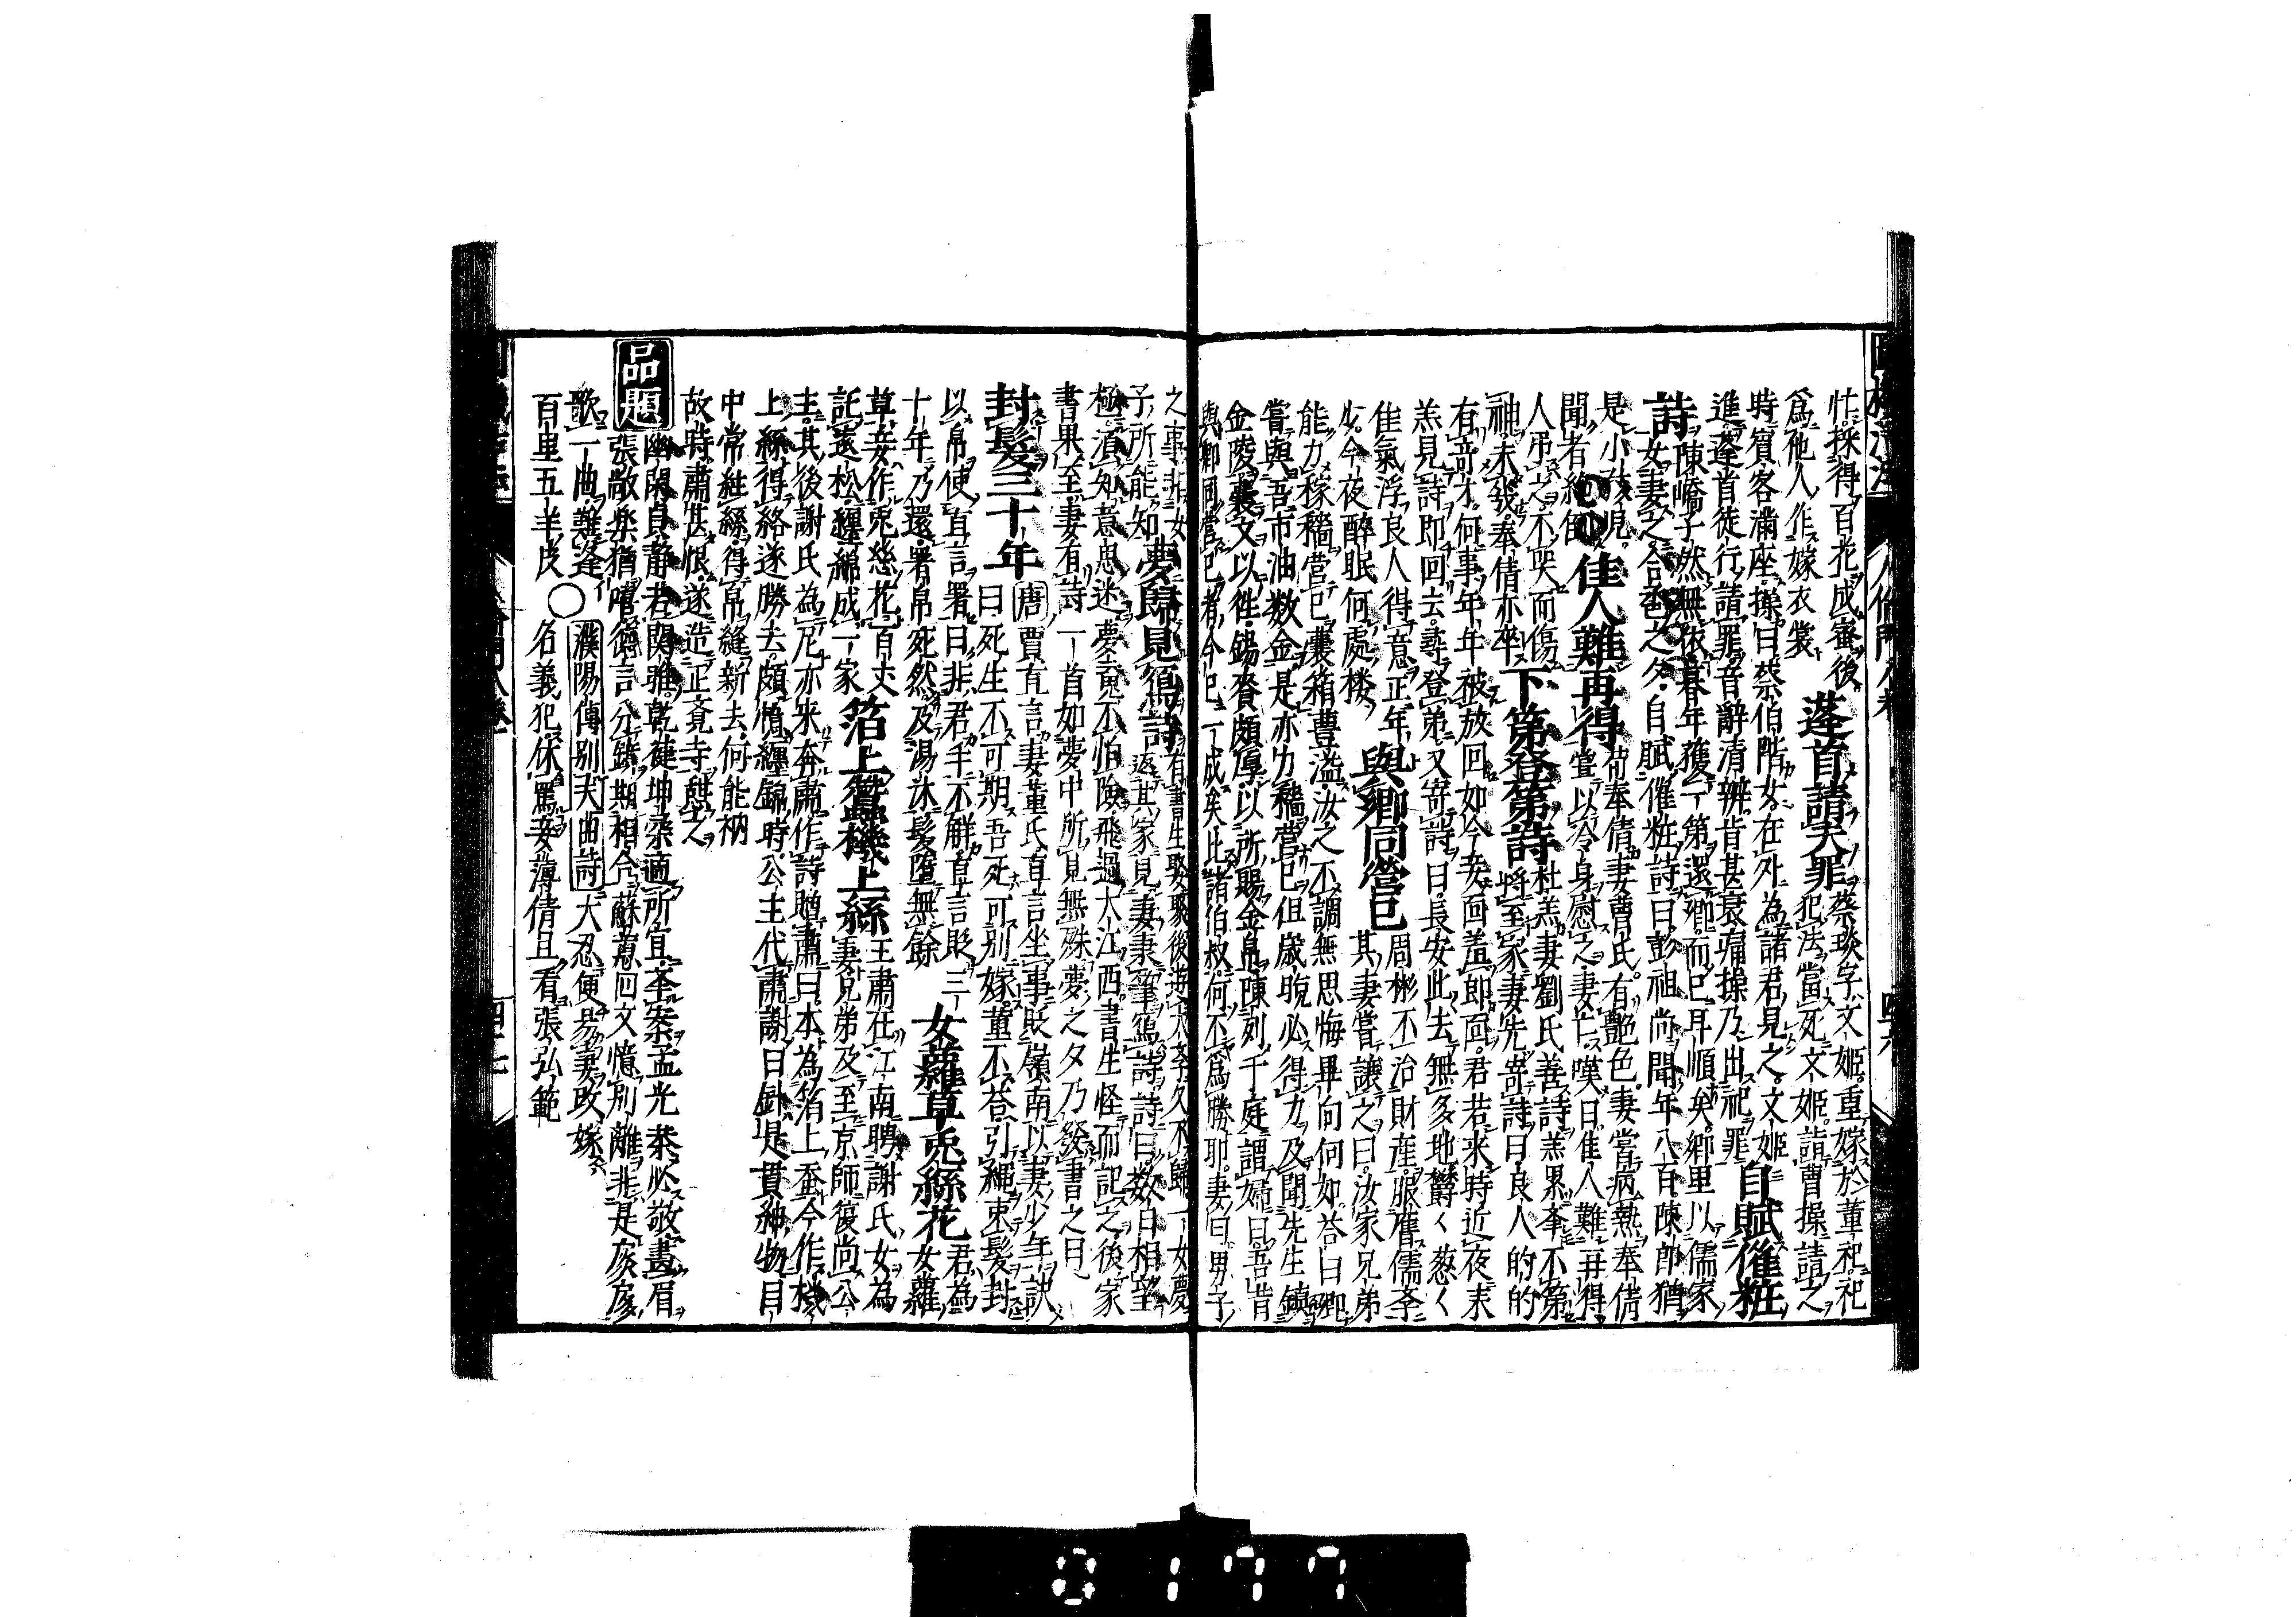 忙。採得百花成蜜後。
爲他人作嫁衣裳 蓬首請夫罪 蔡琰字文姬。重嫁於董祀。祀
犯法當死。文姬詣曹操請之
時賓客滿座。操曰蔡伯階女在外。為諸君見之。文姬
進。蓬首徒行請罪。音辭清辨。旨甚哀痛。操乃出祀罪 自賦催粧
詩 陳嶠孑然無依。暮年獲一第還鄉。而已耳順矣。鄉里以儒家
女妻之。合卺之夕。自賦催粧詩曰彭祖尚聞年八百。陳郎猶
是小孩兒。
佳人難再得 荀奉倩妻曹氏。有艷色妻當病熱奉倩
聞者絶倒 嘗以冷身慰之。妻亡。嘆曰。佳人難再得
人弔之不哭而傷
神。未幾奉倩亦卒 下第登第詩 杜羔妻劉氏善詩。羔累擧不第
將至家妻先寄詩曰。良人的的
有奇才。何事年年被放回。如今妾面羞郎面。君若来時近夜来
羔見詩即回去。尋登第。又寄詩曰。長安此去無多地。欝々葱々
佳氣浮。良人得意正年
少。今夜醉眠何處楼 與卿同營已 周彬不治財産。服膺儒学
其妻嘗譏之曰。汝家兄弟
能力稼穡營已。囊箱豊溢。汝之不調無思悔畢向何如。答曰卿
嘗與吾市油数金。是亦力穡營已但歳晩必得力。及聞先生鎮
金陵。裹文以往。錫賚頗厚。以所賜金帛陳列千庭。謂婦曰。吾肯
與卿同營已者。今已一成矣。比諸伯叔。何不為勝耶。妻曰。男子
之事。非女
子所能知 夢歸見寫詩 有書生娶
返其家見妻秉筆寫詩。詩曰。数日相望
極。須知意思迷。夢魂不怕險。飛過大江西。書生怪而記之。後家
書果至。妻有詩一首如夢中所見無殊。夢之夕乃發書之日
封髪三十年 唐 賈直言妻董氏。直言坐事貶嶺南。以妻少年訣
曰死生不可期。吾死可別嫁。董不荅。引繩束髪封
以帛。使直言署曰。非君手不解。直言貶三
十年乃還。署帛死然。及湯沐髪墮無餘 女蘿草兎絲花 君為
女蘿
草。妾作兎絲花。百丈
託遠松。纏綿成一家 箔上蠶機上絲 王肅在江南聘謝氏女為
妻。兄弟及至京師復尚公
主。其後謝氏為尼。亦来奔肅。作詩贈肅曰。本為箔上蚕。今作機
上絲。得絡遂勝去。頗憶纏綿時。公主代肅謝曰。針是貫紳物。目
中常絍絲。得帛縫新去。何能衲
故時。肅甚恨。遂造正覺寺憩之
品題 幽閑貞靜。若関雎。乾健坤柔適所宜。举案孟光恭必敬。畫眉
張敞樂猶嘻。德言分鏡期相合。蘇蕙回文憶別離。非是扊扅
歌一曲。難逢
百里五羊皮 〇 濮陽傳别夫曲詩 大忍便易妻政嫁
名義犯。休罵妾薄倩。且看張弘範
0177